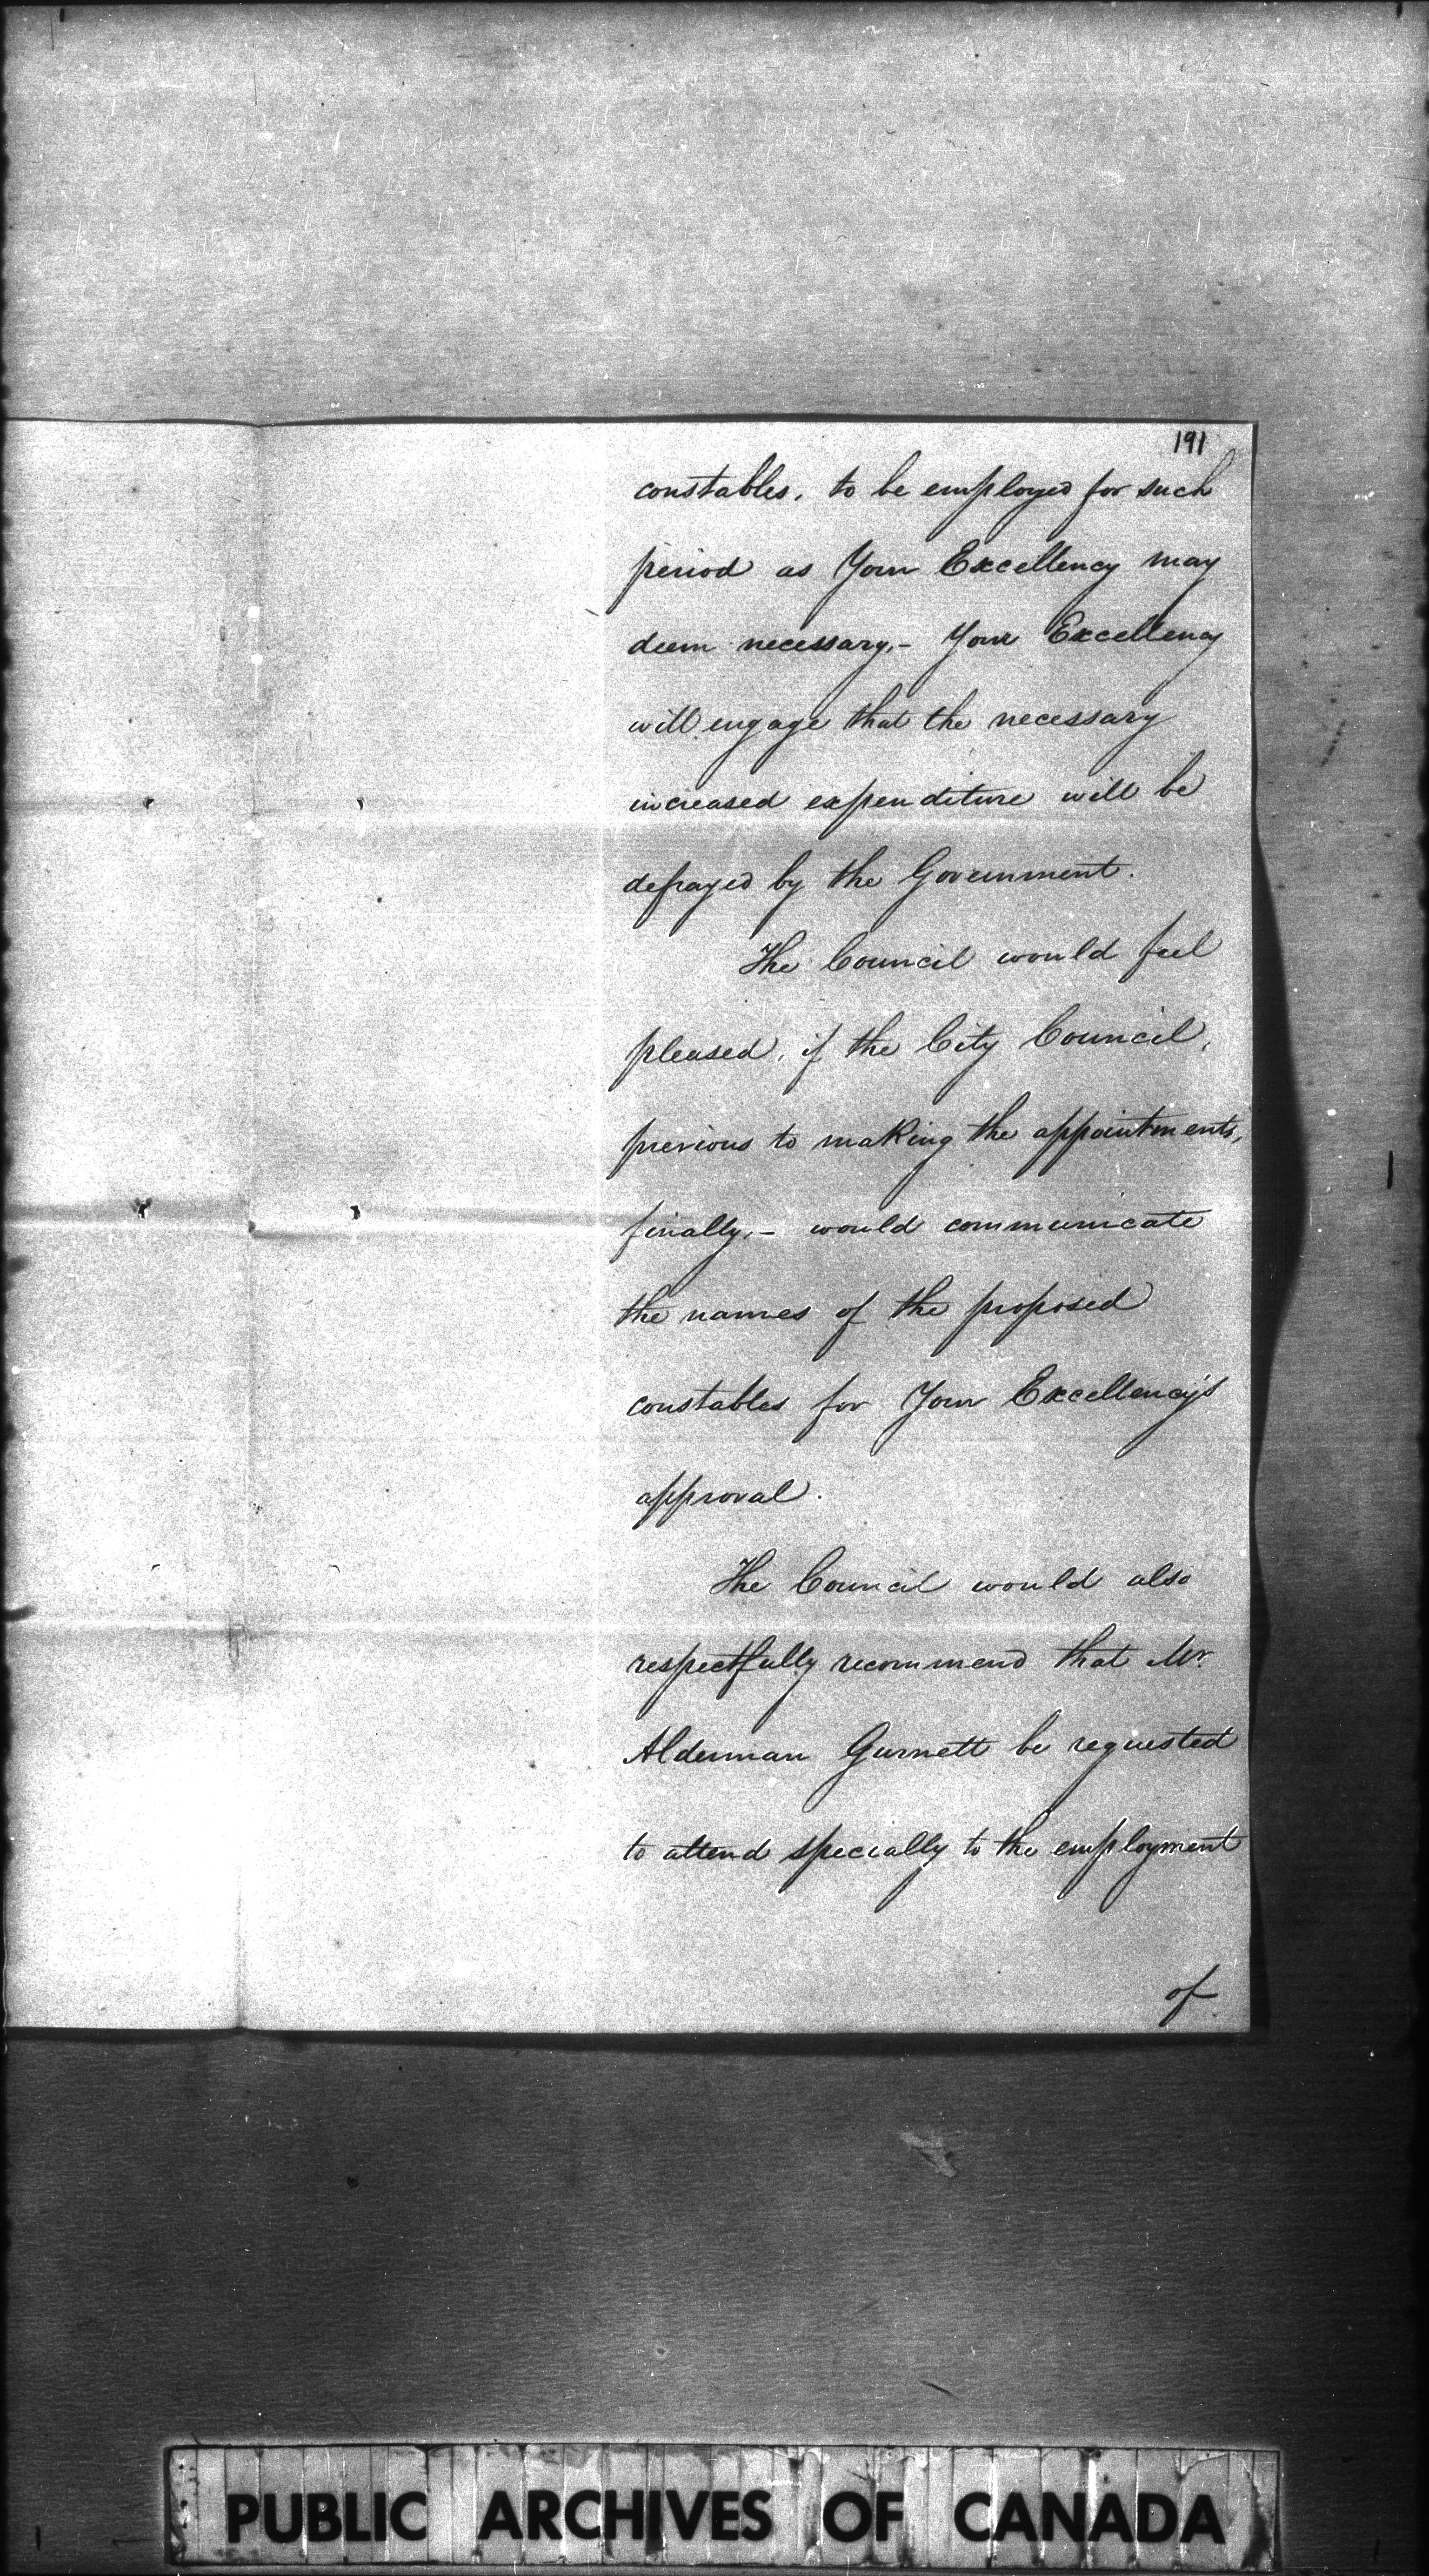 191
constables, to be employed for such
period as Your Excellency may
deem necessary,- Your Excellency
will engage that the necessary
increased expenditure will be
defrayed by the Government.
The Council would feel
pleased, if the City Council,
previous to making the appointments,
finally,- would communicate
the names of the proposed
constables for Your Excellency's
approval.
The Council would also
respectfully recommend that Mr.
Alderman Gurnett be requested
to attend specially to the employment
of
PUBLIC ARCHIVES OF CANADA